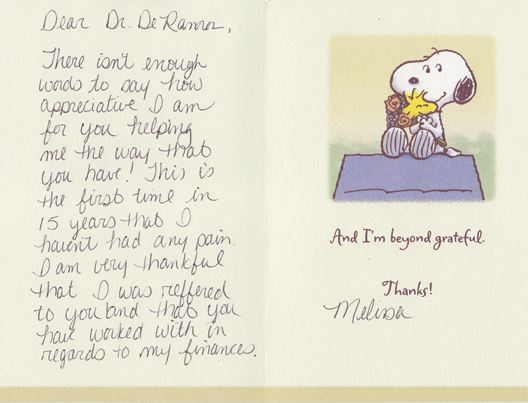 Dear Dr. DeRamos,
There isn't enough
words to say how
appreciative I am
for you helping
me the way that
you have! This is
the first time in
15 years that I
haven't had any pain.
I am very thankful
that I was reffered
to you and that you
have worked with in
regards to my finances.
And I'm beyond grateful.
Thanks!
Melissa